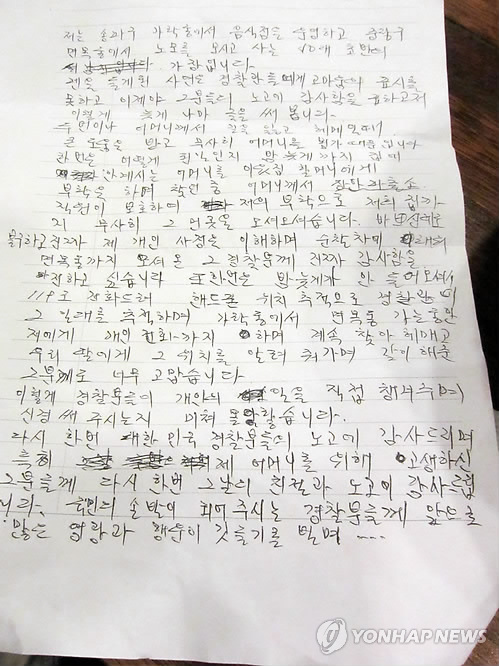 저는 송파구 가락동에서 음식점을 운영하고 중랑구
면목동에서 노모를 모시고 사는 40대 초반의
가장입니다.
펜을 들게된 사연은 경찰관들에게 고마움의 표시를
못하고 이제야 그분들의 노고에 감사함을 표하고저
이렇게 늦게나마 글을 써 봅니다.
어머니께서 길을 잃고 헤메일때
큰 도움을 받고 무사히 어머니를 찾기 때문입니다
한번은 어떻게 된일인지 밤 늦게까지 집에
안계시는 어머니를
부탁을 하며 확인 중 어머니께서 잠깐 파출소
직원이 보호하며 저의 부탁으로 저희 집까
지 무사히 그 먼곳을 모셔오셨습니다. 바쁘신데
불구하고 제 개인 사정을 이해하며 순찰차에
면목동까지 모셔온 그 경찰분께 감사함을
전하고 싶습니다 또한번은 밤늦게까지 안 들어오셔서
119로 전화드려 핸드폰 위치 추적으로 경찰관이
그 일대를 추적하며 가락동에서 면목동 가는동안
저에게 개인 전화까지 하며 계속 찾아 헤매고
우리 딸에게 그 위치를 알려 줘가며 같이 해준
그분께도 너무 고맙습니다
이렇게 경찰분들이 개인의 일을 직접 챙겨주며
신경 써 주시는지 미쳐 몰랐습니다.
다시 한번 대한민국 경찰분들의 노고에 감사드리며
특히 제 어머니를 위해 고생하신
그분들께 다시 한번 그날의 친절과 노고에 감사드립
니다. 국민의 손발이 되어 주시는 경찰분들께 앞으로
많은 영광과 행운이 깃들기를 빌며 ----
YONHAPNEWS